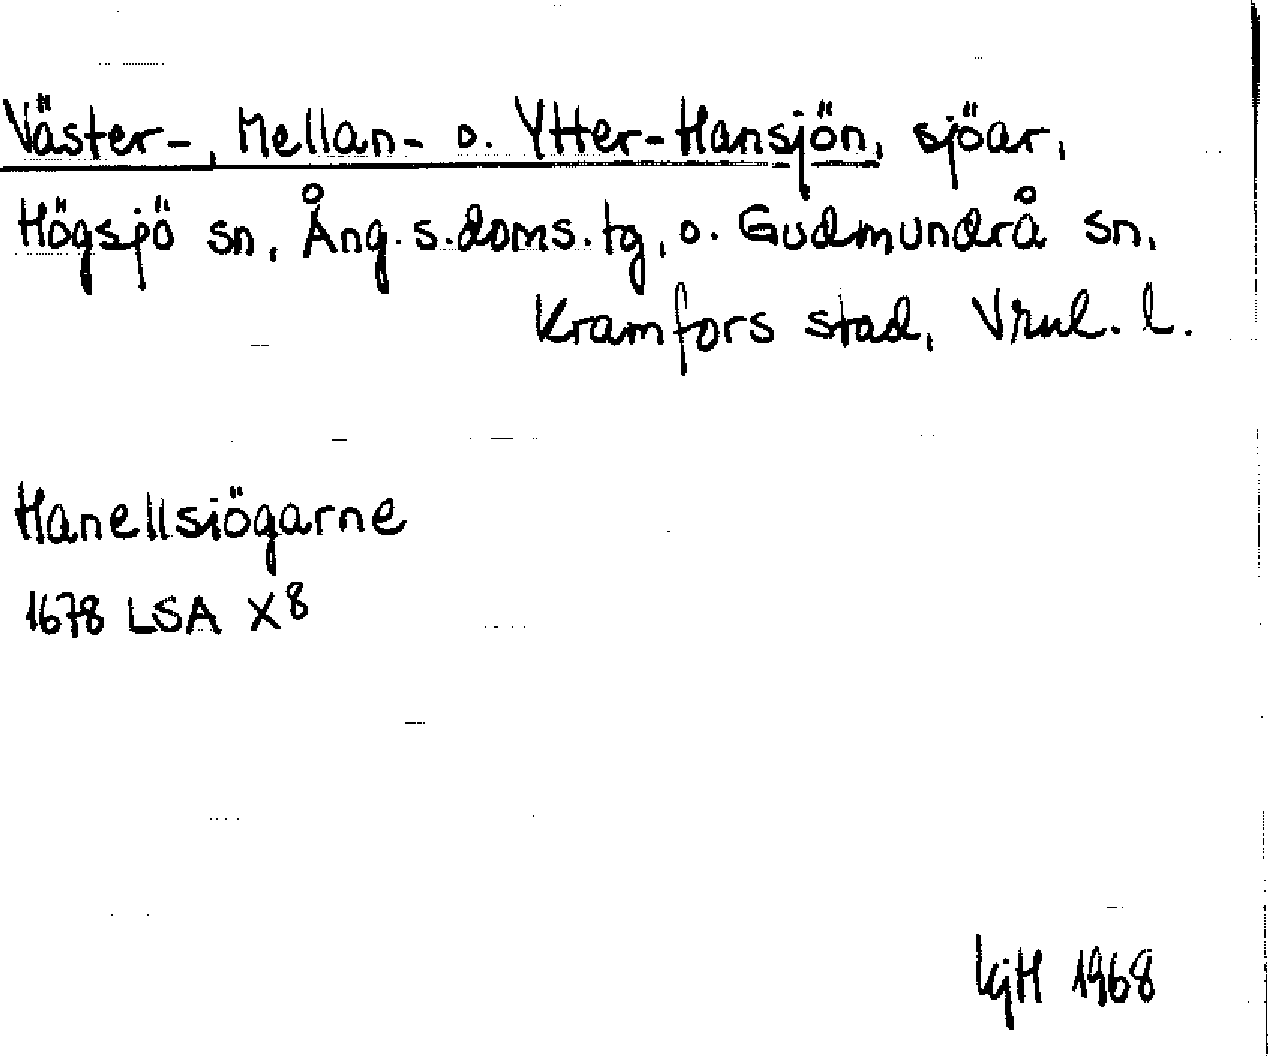 Väster-, Mellan- o. Ytter-Hansjön, sjöar,
Högsjö sn, Ång. s. doms. tg, o. Gudmundrå sn,
Kramfors stad, Vrnl. l.
Hanellsiögarne
1678 LSA X8
KjH 1968